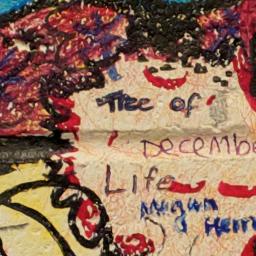 Tree of
Decembe
Life
Megan
Hem